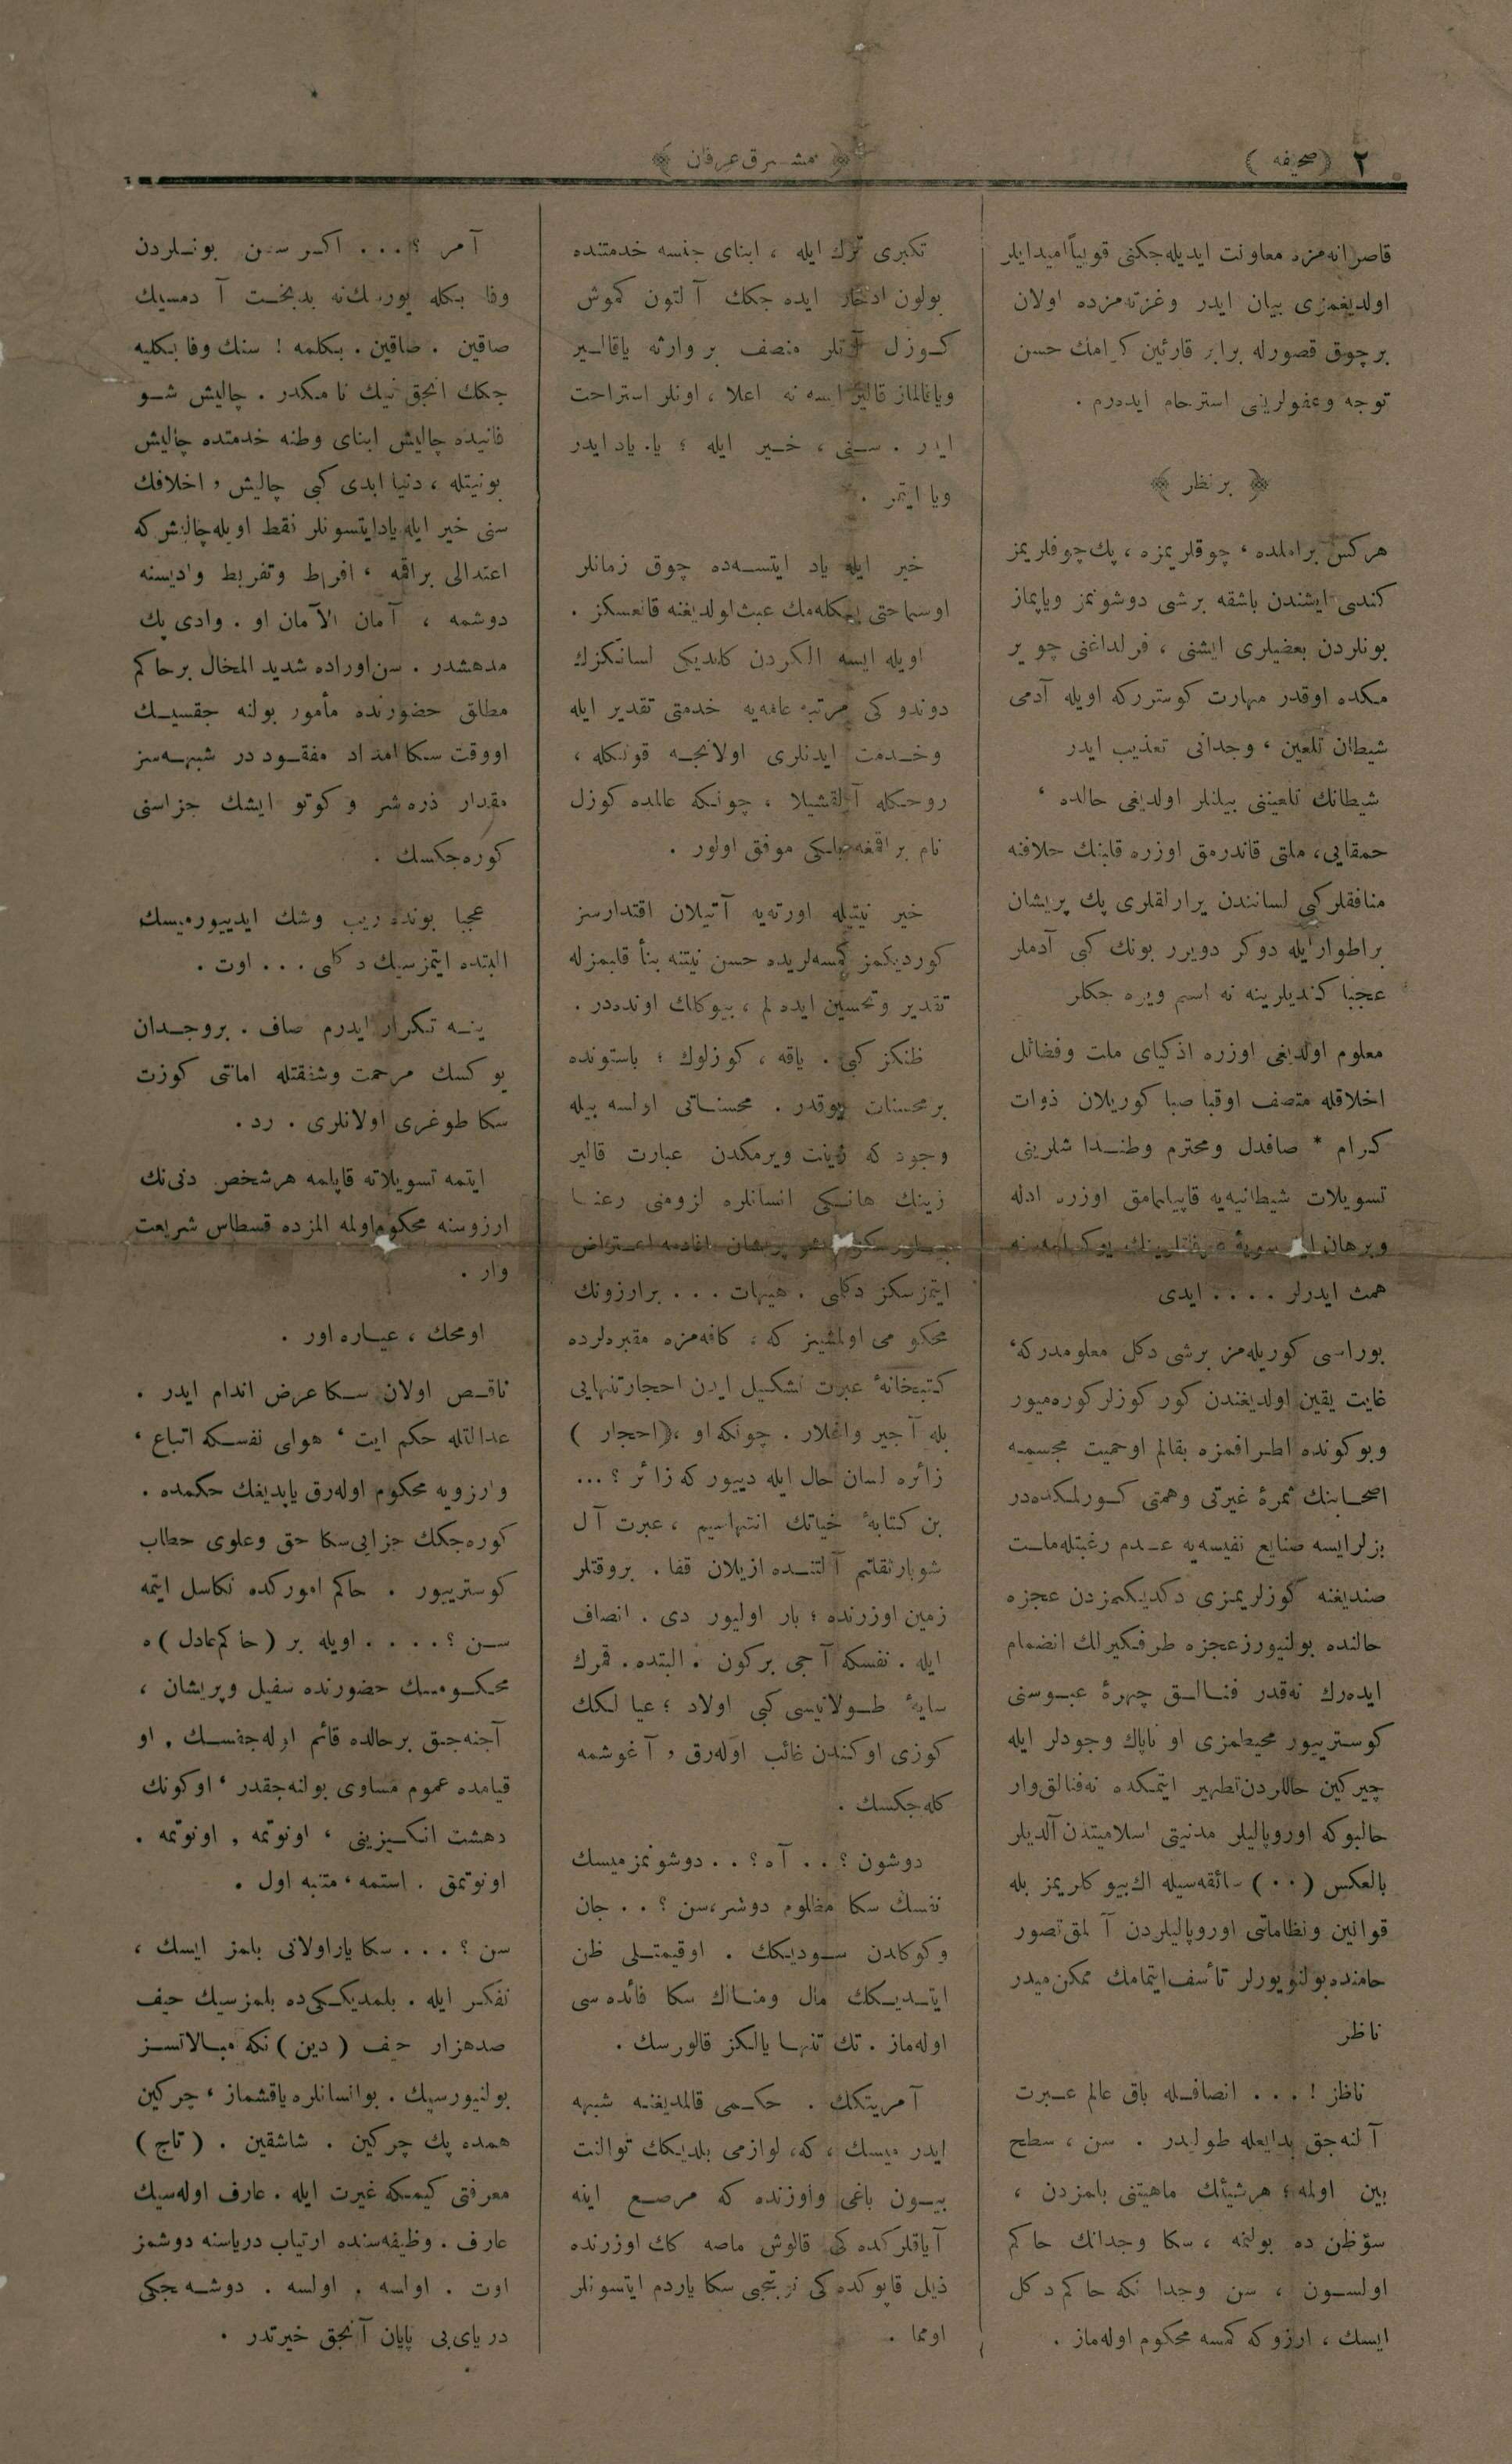 ٢ (صحیفه)
﴿ مشرق عرفان ﴾
قاصرانه‌مزه معاونت ایدیله‌جكنی قویاً امیدایلر
اولدیغمزی بیان ایدر وغزته‌مزده اولان
برچوق قصورله برابر قارئین كرامك حسن
توجه وعفولرینی استرحام ایده‌رم .
﴿ برنظر ﴾
هركس برامله ، چوقلریمزه ، پك چوقلریمز
كندی ایشندن باشقه برشی دوشونمز ویاپماز
بونلردن بعضیلری ایشنی ، فرلداغنی چویر
مكده اوقدر مهارت كوستررکه اویله آدمی
شیطان تلعین ، وجدانی تعذیب ایدر
شیطانك تلعیننی بیلنلر اولدیغی حالده ،
حمقایی، ملتی قاندرمق اوزره قلبنك خلافنه
منافقلركبی لساندن یرارلقلری پك پریشان
براطوارایله دوكر دویرر بونك كبی آدملر
عجبا كندیلرینه نه اسم ویره جكلر
معلوم اولدیغی اوزره اذكیای ملت وفضائل
اخلاقله متصف اوقبا صبا كوریلان ذوات
كرام * صافدل ومحترم وطنداشلرینی
تسویلات شیطانیه‌یه قاپیلمامق اوزره ادله
وبرهان ایله سویهٔ عرفانلرینك یوكسلمه‌سنه
همت ایدرلر . . . . ایدی
بوراسی كوریله‌مز برشی دكل معلومدركه،
غایت یقین اولدیغندن كور كوزلر كوره‌میور
وبوكونده اطرافمزه بقالم اوحمیت مجسمه
اصحابنك ثمرهٔ غیرتی وهمتی كورلمكده‌در
بزلرایسه صنایع نفیسه‌یه عدم رغبتله‌ملت
صندیغنه كوزلریمزی دكدیكمزدن عجزه
حالنده بولنیورزعجزه طرفگیرلك انضمام
ایده‌رك نه‌قدر فنالق چهرهٔ عبوسنی
كوسترییور محیطمزی او ناپاك وجودلر ایله
چیركین حاللردن‌تطهیر ایتمكده نه‌فنالق‌وار
حالبوكه اوروپالیلر مدنیتی اسلامیتدن‌آلدیلر
بالعكس (٠٠) سائقه‌سیله اك‌بیوكلریمز بله
قوانین ونظاماتی اوروپالیلردن آلمق‌تصور
حامنده‌بولنویورلر تأسف‌ایتمامك ممكن‌میدر
ناظر
ناظر ! . . . انصافله باق عالم عبرت
آلنه‌جق بدایعله طولیدر . سن ، سطح
بین اولمه ؛ هرشیئك ماهیتنی بلمزدن ،
سؤظن ده بولنمه ، سكا وجدانك حاكم
اولسون ، سن وجدا نكه حاكم دكل
ایسك ، ارزوكه كمسه محكوم اوله‌ماز .
تكبری ترك ایله ، ابنای جنسه خدمتنده
بولون ادخار ایده جكك آلتون كموش
كوزل آتلر منصف بر وارثه یاقالیر
ویاقالماز قالیر ایسه نه اعلا ، اونلر استراحت
ایدر . سنی ، خیر ایله ؛ یا. یاد ایدر
ویا ایتمز .
خیر ایله یاد ایتسه‌ده چوق زمانلر
اوسماحتی بكله‌مك عبث‌اولدیغنه قانعسكز .
اویله ایسه الكردن كلدیكی لسانكزك
دوندو كی مرتبه عامه‌یه خدمتی تقدیر ایله
وخدمت ایدنلری اولانجه قوتكله ،
روحكله آلقشیلا ، چونكه عالمده كوزل
نام براقمغه‌بلكی موفق اولور .
خیر نیتیله اورته‌یه آتیلان اقتدارسز
كوردیكمز كمسه‌لریده حسن نیتنه بنأ قلبمزله
تقدیر وتحسین ایده لم ، بیوكلك اونده‌در .
ظنكز كبی . یاقه ، كوزلوك ؛ باستونده
برمحسنات یوقدر . محسناتی اولسه بیله
وجود كه زینت ویرمكدن عبارت قالیر
زینك هانكی انسانلره لزومنی رعنا
ایتمزسكز دكلی . هیهات . . . برارزونك
محكو می اولمشیز كه ؛ كافه‌مزه مقبره‌لرده
كتبخانهٔ عبرت تشكیل ایدن احجارتنهایی
بله آجیر واغلار . چونكه او ،(احجار )
زائره لسان حال ایله دییور كه زائر ؟ ...
بن كتابهٔ حیاتك انتهاسیم ، عبرت آل
شوبارثقلتم آلتنده ازیلان قفا . بروقتلر
زمین اوزرنده ؛ بار اولیور دی . انصاف
ایله . نفسكه آجی بركون . البتده . قمرك
سایهٔ طولانیسی كبی اولاد ؛ عیا لكك
كوزی اوكندن غائب اوله‌رق ، آغوشمه
كله‌جكسك .
دوشون ؟ . . آه ؟ . . دوشونمزمیسك
نفسك سكا مظلوم دوشر،سن ؟ . . جان
وكوكلدن سودیكك . اوقیمتلی ظن
ایتدیكك مال ومنالك سكا فائده سی
اوله‌ماز . تك تنها یالكز قالورسك .
آمریتكك . حكمی قالمدیغنه شبهه
ایدر میسك ، كه، لوازمی بلدیكك توالت
بیون باغی واوزنده كه مرصع اینه
آیاقلركده كی قالوش ماصه كك اوزرنده
ذیل قاپوكده كی نوبتجی سكا یاردم ایتسونلر
اومما .
آمر ؟ . . . اكر سن بونلردن
وفا بكله یورسك‌نه بدبخت آ دمسیك
صاقین . صاقین . بكلمه ! سنك وفا بكلیه
جكك انجق نیك نا مكدر . چالیش شو
فانیده چالیش ابنای وطنه خدمتده چالیش
بونیتله ، دنیا ابدی كبی چالیش ، اخلافك
سنی خیر ایله یادایتسونلر فقط اویله‌چالیش‌كه
اعتدالی براقمه ، افراط وتفریط وادیسنه
دوشمه ، آمان الآمان او . وادی پك
مدهشدر . سن‌اوراده شدید المحال برحاكم
مطلق حضورنده مأمور بولنه جقسیك
اووقت سكا امداد مفقود در شبهه‌سز
مقدار ذره‌شر و كوتو ایشك جزاسنی
كوره‌جكسك .
عجبا بونده ریب وشك ایدییورمیسك
البتده ایتمزسیك دكلی . . . اوت .
ینه تكرار ایدرم صاف . بروجدان
یوكسك مرحمت وشفقتله امانتی كوزت
سكا طوغری اولانلری . رد .
ایتمه تسویلاته قاپلمه هرشخص دنی‌نك
ارزوسنه محكوم‌اولمه المزده قسطاس شریعت
وار .
اومحك ، عیاره اور .
ناقص اولان سكا عرض اندام ایدر .
عدالتله حكم ایت ، هوای نفسكه اتباع ،
وارزویه محكوم اوله‌رق یابدیغك حكمده .
كوره‌جكك جزایی‌سكا حق وعلوی خطاب
كوسترییور . حاكم اموركده تكاسل ایتمه
سن ؟ . . . . اویله بر (حاكم‌عادل )ه
محكومسك حضورنده سفیل وپریشان ،
آجنه‌جق برحالده قائم اوله‌جقسك . او
قیامده عموم مساوی بولنه‌جقدر ، اوكونك
دهشت انكیزینی ، اونوتمه , اونوتمه .
اونوتمق . استمه ، متنبه اول .
سن ؟ . . . سكا یاراولانی بلمز ایسك ،
تفكر ایله . بلمدیككی‌ده بلمزسیك حیف
صدهزار حیف (دین )نكه مبالاتسز
بولنیورسیك . بوانسانلره‌یاقشماز ، چركین
همده پك چركین . شاشقین . (تاج)
معرفتی كیمكه غیرت ایله . عارف اوله‌سیك
عارف . وظیفه‌سنده ارتیاب دریاسنه دوشمز
اوت . اولسه . اولسه . دوشه‌جكی
دریای‌بی پایان آنجق خیرتدر .